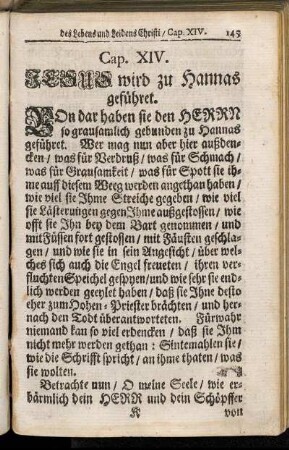 des Lebens und Leidens Christi / Cap. XIV. 145
Cap. XIV.
JESUS wird zu Hannas
geführet.
VOn dar haben sie den HERRN
so grausamlich gebunden zu Hannas
geführet. Wer mag nun aber hier außden-
cken / was für Verdruß / was für Schmach /
was für Grausamkeit / was für Spott sie ih-
me auff diesem Weeg werden angethan haben /
wie viel sie Ihme Streiche gegeben / wie viel
sie Lästerungen gegen Ihme außgestossen / wie
offt sie Ihn bey dem Bart genommen / und
mit Füssen fort gestossen / mit Fäusten geschla-
gen / und wie sie in sein Angesicht / über wel-
ches sich auch die Engel freueten / ihren ver-
fluchten Speichel gespyen / und wie sehr sie end-
lich werden geeylet haben / daß sie Ihne desto
eher zum Hohen-Priester brächten / und her-
nach den Todt überantworteten. Fürwahr
niemand kan so viel erdencken / daß sie Ihm
nicht mehr werden gethan : Sintemahlen sie /
wie die Schrifft spricht / an ihme thaten / was
sie wolten.
Betrachte nun / O meine Seele / wie er-
bärmlich dein HERR und dein Schöpffer
K von